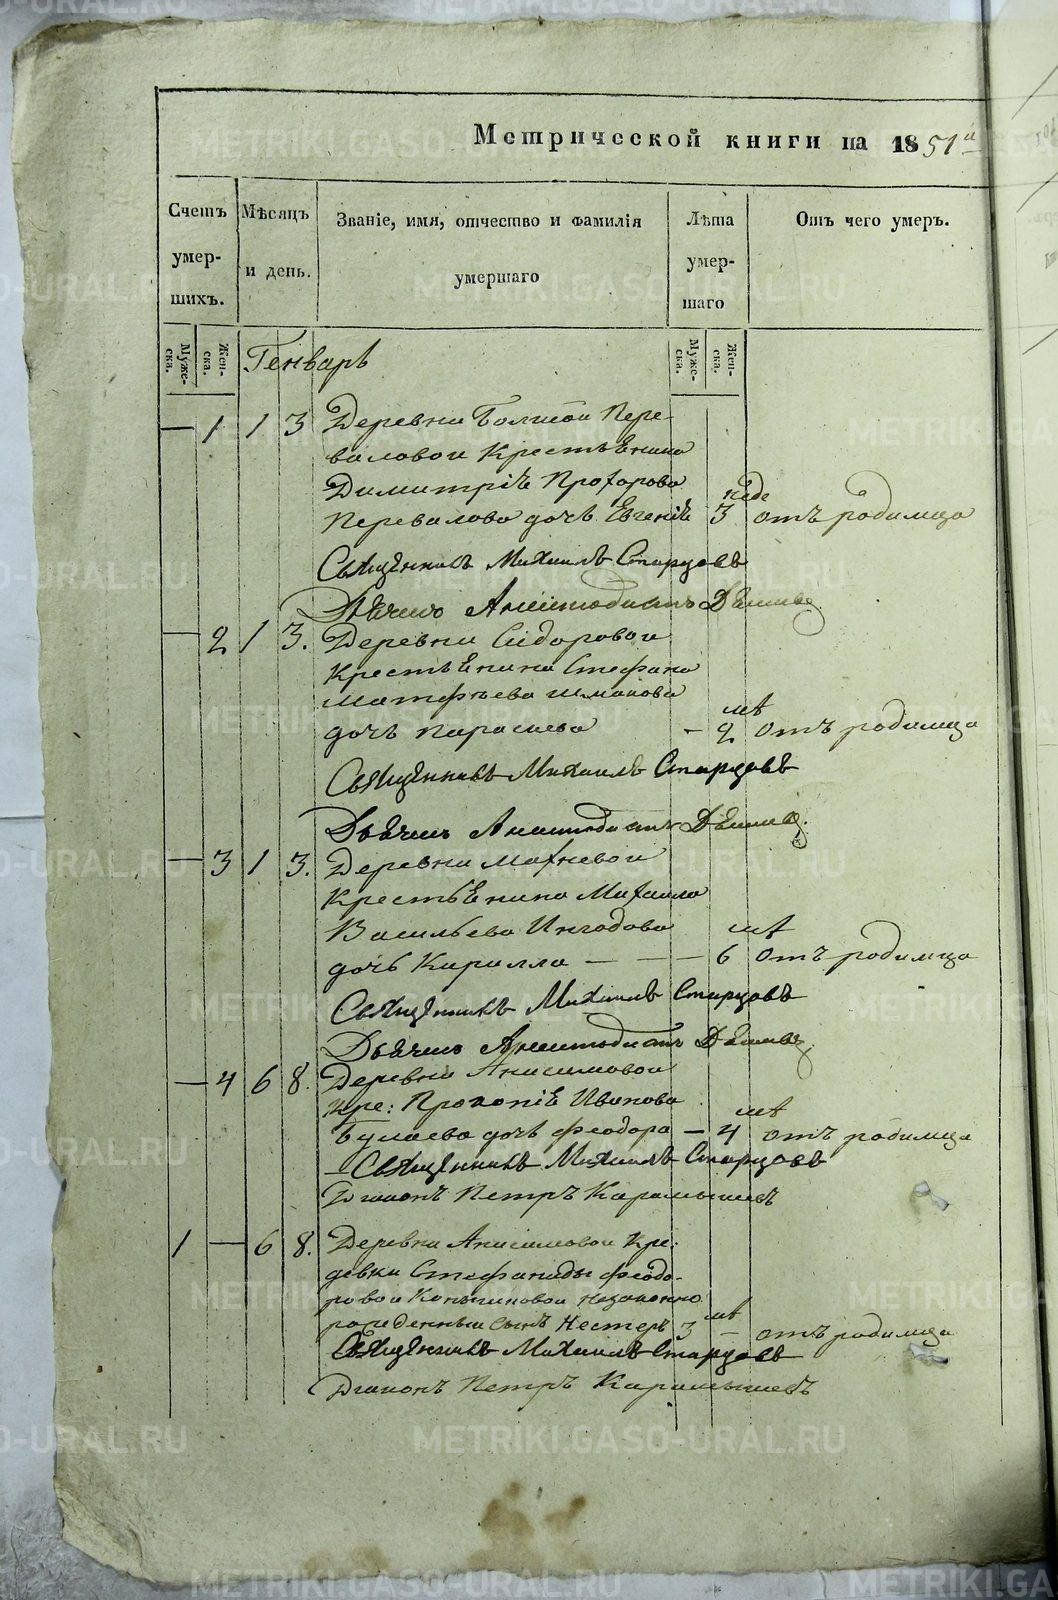 Метрической книги на 1851й
Счетъ умер-шихъ.
Мѣсяцъ и день.
Званіе, имя, отчество и фамилія умершаго
Лѣта умер-шаго
Отъ чего умеръ.
Муже-ска.
Жен-ска.
Генварь
Муже-ска.
Жен-ска.
— 1 1 3 Деревни Болшой Пере-
валовой Крестьянина
Димитрія Прохорова
Перевалова дочь Евгенія 3 неде отъ родимца
Священникъ Михаилъ Старцовъ
Дьячекъ
— 2 1 3. Деревни Сидоровой
Крестьянина Стефана
Матфѣева Шмакова
дочь Параскева – 2 лѣ отъ родимца
Священникъ Михаилъ Старцовъ
Дьячекъ
— 3 1 3. Деревни Махневой
Крестьянина Михаила
Васильева
дочь Кирилла — — — 6 лѣ отъ родимца
Священникъ Михаилъ Старцовъ
Дьячекъ
— 4 6 8. Деревни Анисимовой
Кре: Прокопія Иванова
Булаева дочь Феодора — 4 лѣ отъ родимца
Священникъ Михаилъ Старцовъ
Діаконъ Петръ Карамышевъ
1 — 6 8. Деревни Анисимовой Кре:
девки Стефаниды Феодо-
ровой незаконно
рожденный сынъ Нестеръ 3 лѣ – отъ родимца
Священникъ Михаилъ Старцовъ
Діаконъ Петръ Карамышевъ
METRIKI.GASO-URAL.RU